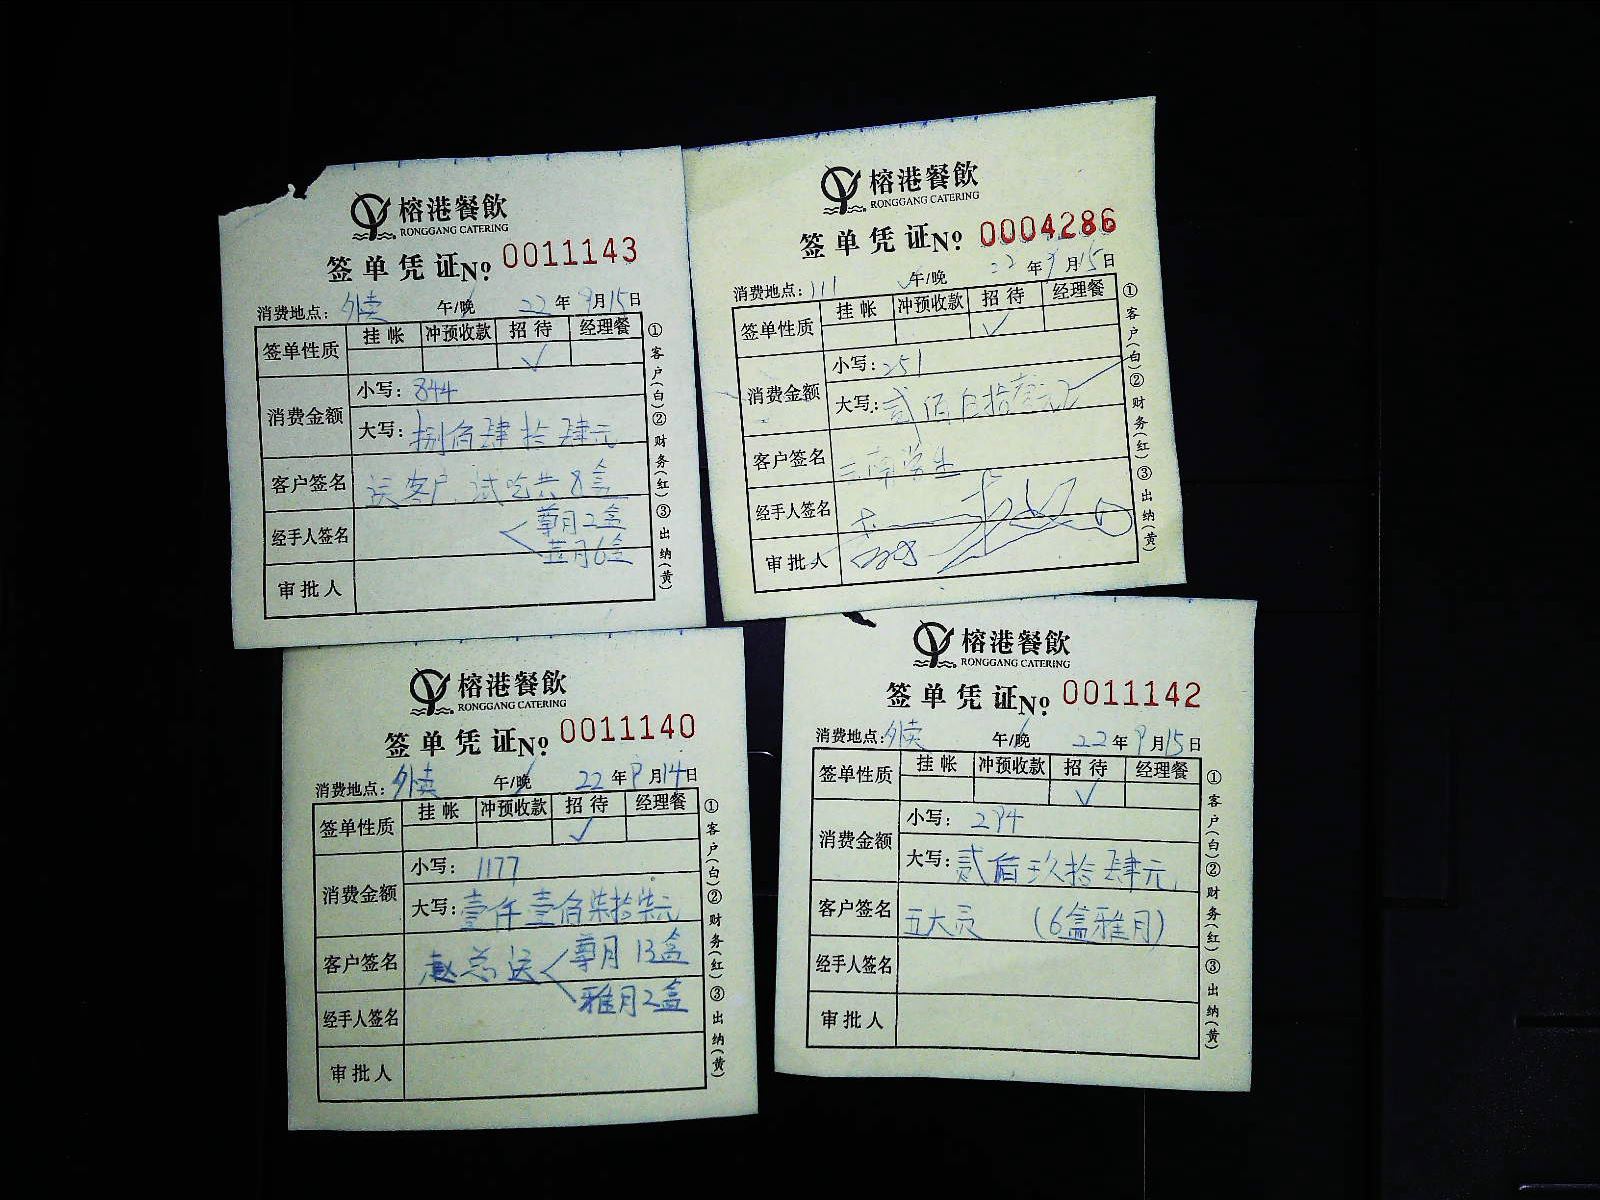 榕港餐飲
RONGGANG CATERING
签单凭证№ 0011143
消费地点: 外卖 午/晚 22年9月15日
签单性质 挂帐 冲预收款 招待 经理餐
✓
消费金额 小写: 844
大写: 捌佰肆拾肆元
客户签名 送客户 试吃共8盒
经手人签名 尊月2盒
月6盒
审批人
①客户(白)②财务(红)③出纳(黄)
榕港餐飲
RONGGANG CATERING
签单凭证№ 0004286
消费地点: 111 午/晚 22年9月15日
签单性质 挂帐 冲预收款 招待 经理餐
✓
消费金额 小写: 251
大写: 贰佰
客户签名
经手人签名
审批人
①客户(白)②财务(红)③出纳(黄)
榕港餐飲
RONGGANG CATERING
签单凭证№ 0011140
消费地点: 外卖 午/晚 22年9月14日
签单性质 挂帐 冲预收款 招待 经理餐
✓
消费金额 小写: 1177
大写: 壹仟壹佰柒拾柒元
客户签名 赵总送 尊月13盒
雅月2盒
经手人签名
审批人
①客户(白)②财务(红)③出纳(黄)
榕港餐飲
RONGGANG CATERING
签单凭证№ 0011142
消费地点: 外卖 午/晚 22年9月15日
签单性质 挂帐 冲预收款 招待 经理餐
✓
消费金额 小写: 294
大写: 贰佰玖拾肆元
客户签名 五大 (6盒雅月)
经手人签名
审批人
①客户(白)②财务(红)③出纳(黄)